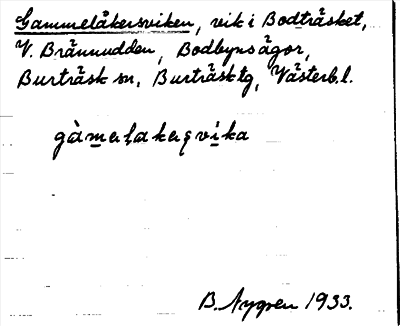 Gammelåkersviken, vik i Bodträsket,
V. Brännudden, Bodbynsägor,
Burträsk sn, Burträsk tg, Västerb. l.
gàmaḷakaṣvika
B. Nygren 1933.